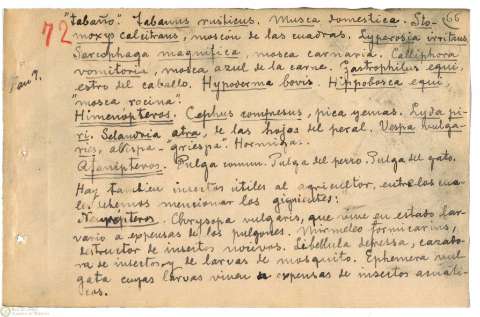 "tabaño". Tabanus rusticus. Musca domestica. Sto- 66
72 moxys calcitrans, moscon de las cuadras. Lyperosia irritans.
Sarcophaga magnifica, mosca carnaria. Calliphora
vomitoria, mosca azul de la carne. Gastrophilus equi,
estro del caballo. Hypoderma bovis. Hippobosca equi,
"mosca rocina".
Himenópteros. Cephus compresus, pica yemas. Lyda pi-
ri. Selandria atra, de las hojas del peral. Vespa vulga-
ris, avispa-griespa. Hormiga.
Afanípteros. Pulga comun. Pulga del perro. Pulga del gato.
Hay tambien insectos útiles al agricultor, entre los cua-
les debemos mencionar los siguientes:
Neurópteros. Chrysopa vulgaris, que vive en estado lar-
vario a expensas de los pulgones. Mirmeleo formicarius,
destructor de insectos nocivos. Libellula depressa, cazado-
ra de insectos y de larvas de mosquito. Ephemera vul-
gata cuyas larvas viven a expensas de insectos acuáti-
cos.